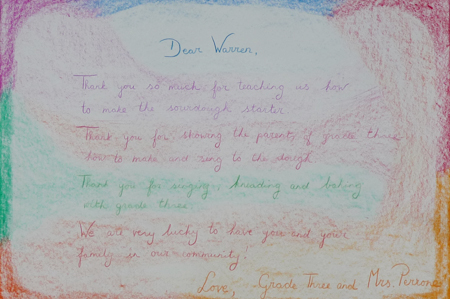 Dear Warren,
Thank you so much for teaching us how
to make the sourdough starter
Thank you for showing the parents of grade three
how to make and sing to the dough
Thank you for singing, kneading and baking
with grade three.
We are very lucky to have you and your
family in our community.
Love, Grade Three and Mrs. Perrone